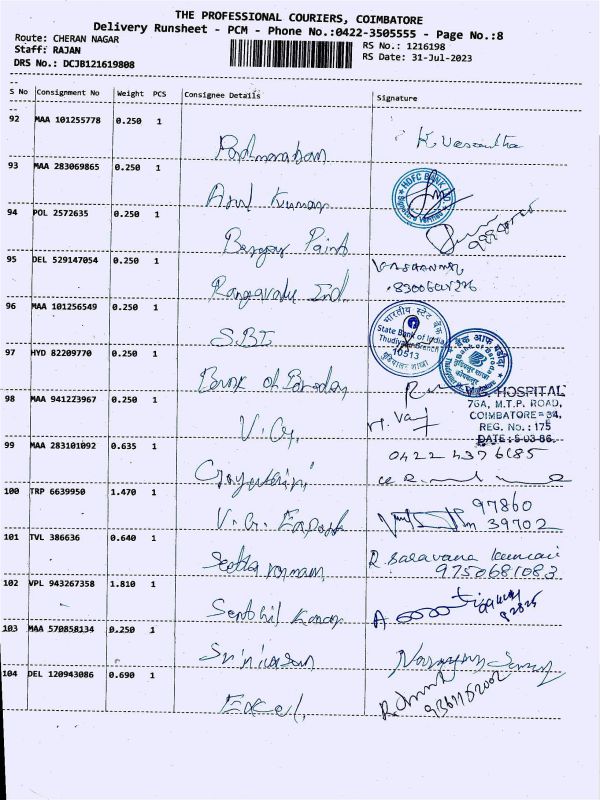 THE PROFESSIONAL COURIERS, COIMBATORE
Delivery Runsheet - PCM - Phone No.:0422-3505555 - Page No.:8
Route: CHERAN NAGAR
RS No.: 1216198
Staff: RAJAN
RS Date: 31-Jul-2023
DRS No.: DCJB121619808
S No Consignment No Weight PCS Consignee Details Signature
92 MAA 101255778 0.250 1
K. Vasantha
93 MAA 283069865 0.250 1
HDFC BANK
Arul Kumar
94 POL 2572635 0.250 1
Paint
95 DEL 529147054 0.250 1
96 MAA 101256549 0.250 1
भारतीय स्टेट बैंक
State Bank of India
Thudiyalur Branch
10513
S.B.I
97 HYD 82209770 0.250 1
Bank of Baroda
98 MAA 941223967 0.250 1
HOSPITAL
76A, M.T.P. ROAD,
COIMBATORE = 34.
REG. No.: 175
DATE: 5-03-86.
V.G.
99 MAA 283101092 0.635 1
0422 4376685
Gayathiri
100 TRP 6639950 1.470 1
97860
39702
V.G.
101 TVL 386636 0.640 1
R. Saravana kumari
9750681083
102 VPL 943267358 1.810 1
Senthil Kumar
103 MAA 570858134 0.250 1
Srinivasan
104 DEL 120943086 0.690 1
Excel,